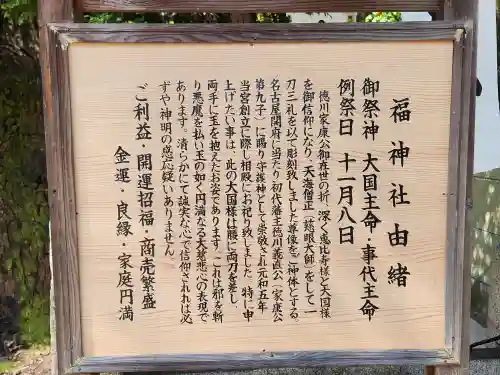 福神社由緒
御祭神 大国主命・事代主命
例祭日 十一月八日
徳川家康公御在世の折、深く恵比寿様と大国様
を御信仰になり、天海僧正(慈眼大師)をして一
刀三礼を以て彫刻致しました尊像をご神体とする。
名古屋開府に当たり初代藩主徳川義直公(家康公
第九子)に賜り守護神として崇敬され元和五年
当宮創立に際し相殿にお祀り致しました。特に申
上げたい事は、此の大国様は腰に両刀を差し、
両手に玉を抱えたお姿であります。これは邪を斬
り悪魔を払い玉の如く円満なる大慈悲心の表現で
あります。清らかにて誠実な心で信仰されれば必
ずや神明の感応疑いありません。
ご利益・開運招福・商売繁盛
金運・良縁・家庭円満